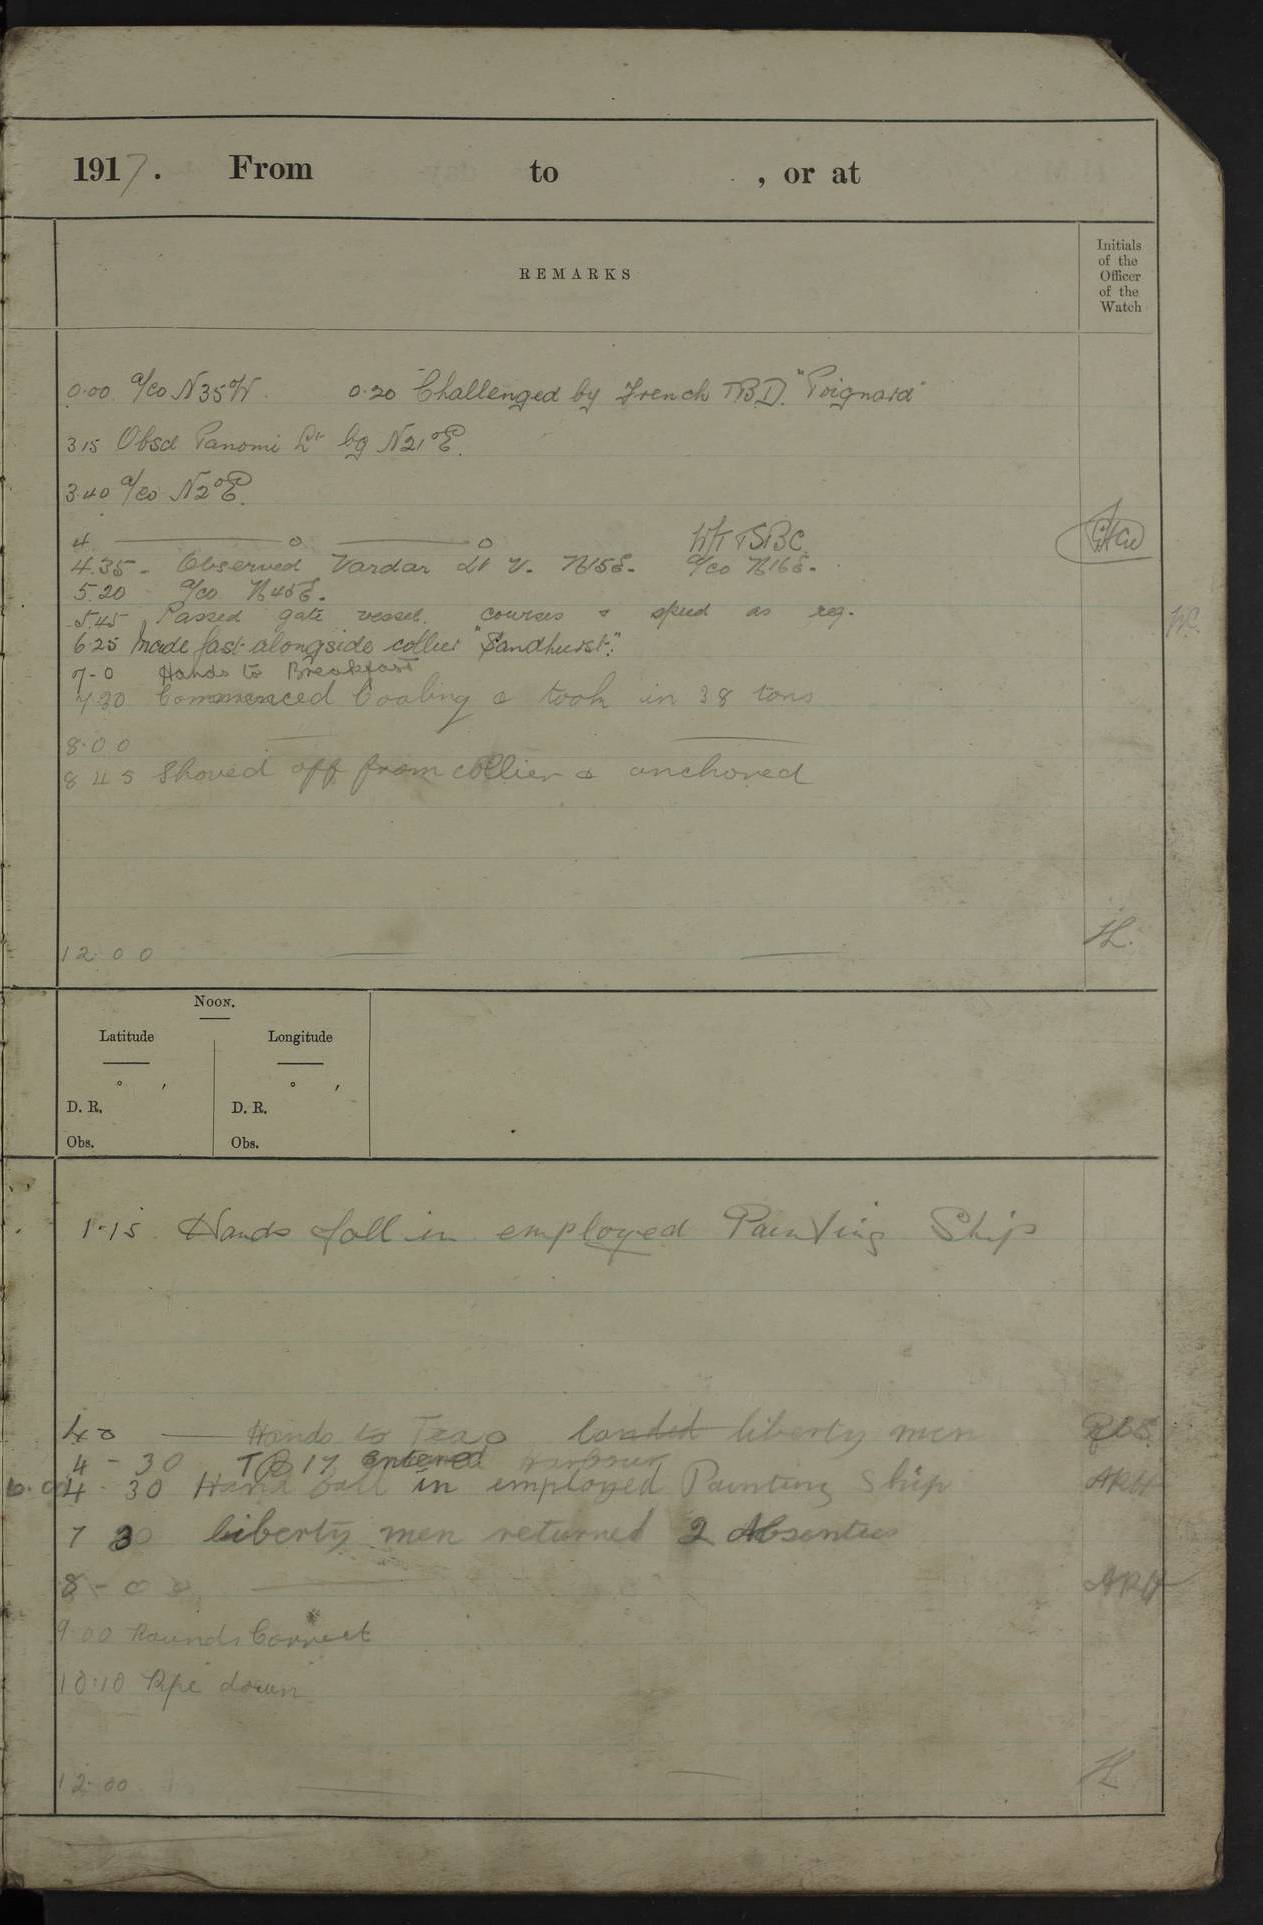 1917. From to , or at
REMARKS
Initials of the Officer of the Watch
0.00 a/co N35°W. 0.20 Challenged by French TBD. "Poignard"
3.15 Obsd Panomi Lt bg N21°E.
3.40 a/co N2°E.
4
4.35 - Observed Vardar Lt V. N15E. a/co N16E.
5.20 a/co N45E.
5.45 Passed gate vessel. courses & speed as req.
6.25 Made fast alongside collier "Sandhurst".
7-0 Hands to Breakfast
7.30 Commenced Coaling & took in 38 tons
8.00
8 45 Shoved off from collier & anchored
12.00
NOON.
Latitude Longitude
° ′ ° ′
D. R. D. R.
Obs. Obs.
1.15 Hands fall in employed Painting Ship
4.0 Hands to Tea landed liberty men
4-30 TB 17 entered harbour
4.30 Hand fall in employed Painting Ship ARH
7 30 liberty men returned 2 Absentees
8-00 ARH
9.00 Rounds Correct
10.10 Pipe down
12.00